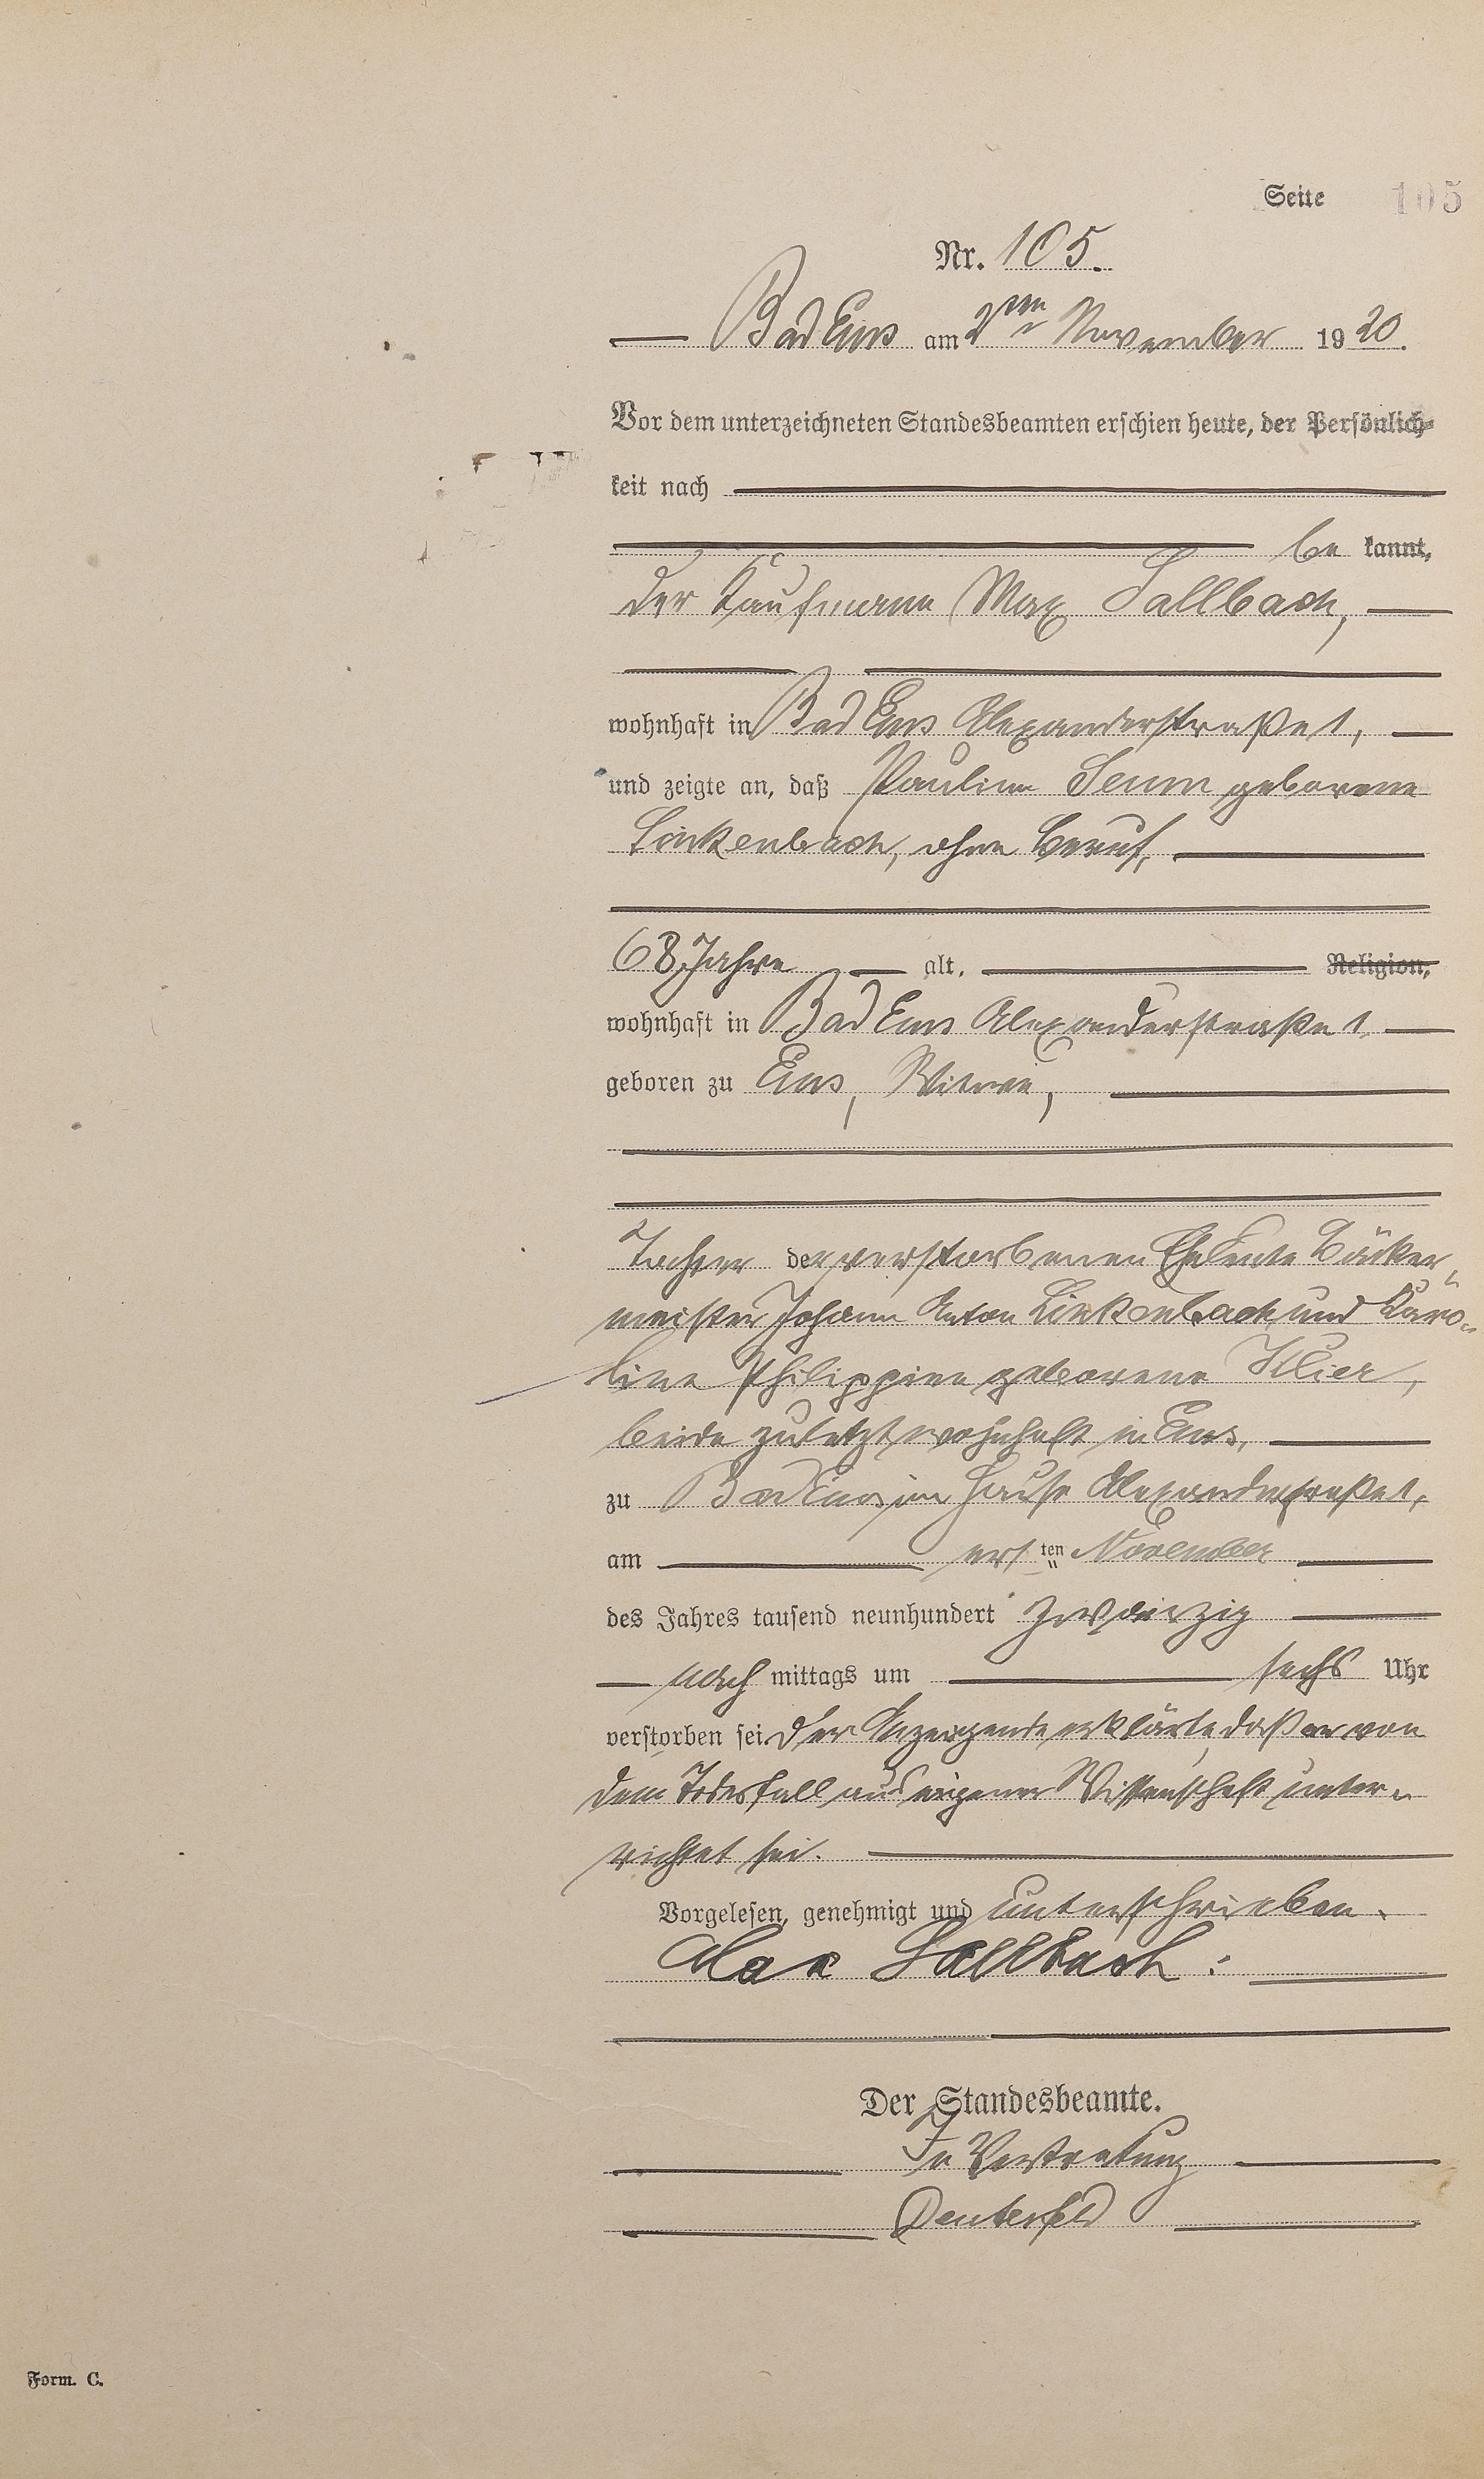 Seite 105
Nr. 105.
Bad Ems am 2ten November 1920.
Vor dem unterzeichneten Standesbeamten erschien heute, der Persönlich-
keit nach
be kannt,
der Kaufmann Max Sallbach,
wohnhaft in Bad Ems Alexanderstraße 1,
und zeigte an, daß Pauline geborene
Linkenbach, ohne Beruf,
68 Jahre alt, Religion,
wohnhaft in Bad Ems Alexanderstraße 1
geboren zu Ems, Witwe,
Tochter der verstorbenen Eheleute Bäcker-
meister Johann Anton Linkenbach und Karo-
line Philippine geborene
beide zuletzt wohnhaft in Ems,
zu Bad Ems im Hause Alexanderstraße 1,
am ersten November
des Jahres tausend neunhundert zwanzig
nach mittags um sechs Uhr
verstorben sei. Der Anzeigende erklärte, daß er von
dem Todesfall aus eigener Wissenschaft unter-
richtet sei.
Vorgelesen, genehmigt und unterschrieben.
Max Sallbach:
Der Standesbeamte.
In Vertretung
Form. C.